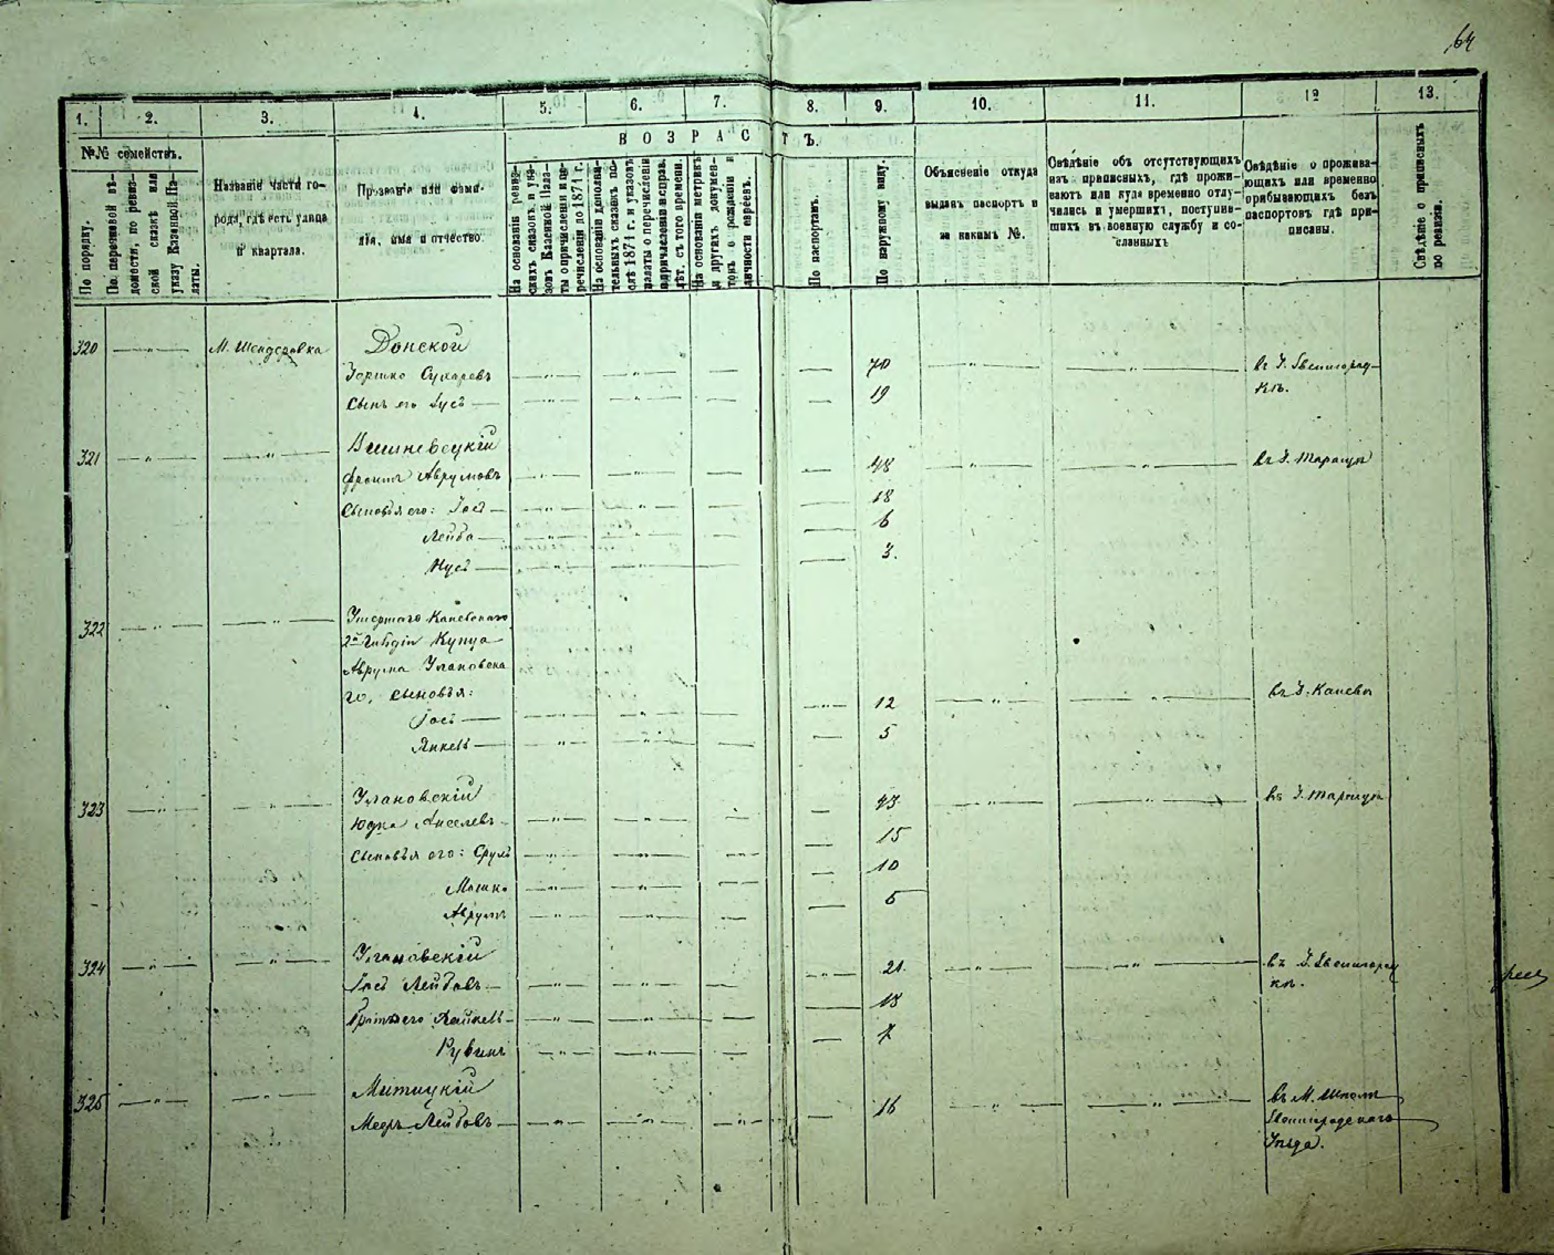 64
1. 2. 3. 4. 5. 6. 7. 8. 9. 10. 11. 12 13.
№№ семействъ.
По порядку.
По перечневой вѣ-
домости, по ревиз-
ской сказкѣ или
указу Казенной Па-
латы.
Названіе части го-
рода, гдѣ есть улица
и квартала.
Прозваніе или фами-
лія, имя и отчество.
ВОЗРАСТЪ.
На основаніи ревиз-
скихъ сказокъ и ука-
зовъ Казенной Пала-
ты о причисленіи и пе-
речисленіи до 1871 г.
На основаніи дополни-
тельныхъ сказокъ по-
слѣ 1871 г. и указовъ
палаты о перечисленіи
и причисленіи и справ.
лѣт. съ того времени.
На основаніи метрик.
и другихъ докумен-
товъ о рожденіи и
личности евреевъ.
По паспортамъ.
По наружному виду.
Объясненіе откуда
выданъ паспортъ и
за какимъ №.
Свѣдѣніе объ отсутствующихъ
изъ приписныхъ, гдѣ прожи-
ваютъ или куда временно отлу-
чились и умершихъ, поступив-
шихъ въ военную службу и со-
сланныхъ
Свѣдѣніе о прожива-
ющихъ или временно
прибывающихъ безъ
паспортовъ гдѣ при-
писаны.
Свѣдѣніе о приписныхъ
по ревизіи.
320 — " — М. Шендеровка Донской
Гершко Сухаревъ — " — — " — — — 70 — " — — " — въ Г. Звенигород-
Сынъ его Іусъ — — " — — " — — — 19 кѣ.
321 — " — — " — Вишневецкій
Фроимъ Аврумовъ — " — — " — — — 48 — " — — " — въ Г. Таращѣ
Сыновья его: Іосъ — — " — — " — — — 18
Лейба — — " — — " — — — 6
Нусъ — — " — — " — — — 3.
322 — " — — " — Умершаго Каневскаго
2й Гильдіи Купца
Аврума Улановска
го, сыновья:
Іосъ — — " — — " — — — " — 12 — " — — " — въ Г. Каневѣ
Янкель — — " — — " — — — 5
323 — " — — " — Улановскій
Юдка Анселевъ — " — — " — — — 43 — " — — " — въ Г. Таращѣ
Сыновья его: Сруль — " — — " — — " — — 15
Мошко — " — — " — — " — — 10
Аврумъ — " — — " — — " — — 5
324 — " — — " — Улановскій
Іосъ Лейбовъ — — " — — " — — — " — 21 — " — — " — въ Г. Звенигород
Братья его — — " — — " — — — 18 кѣ.
Рувинъ — " — — " — — — 7
325 — " — — " —
Мееръ Лейбовъ — — " — — " — — " — — 16 — " — — " — въ М. Шполѣ
Звенигородскаго
Уѣзда.